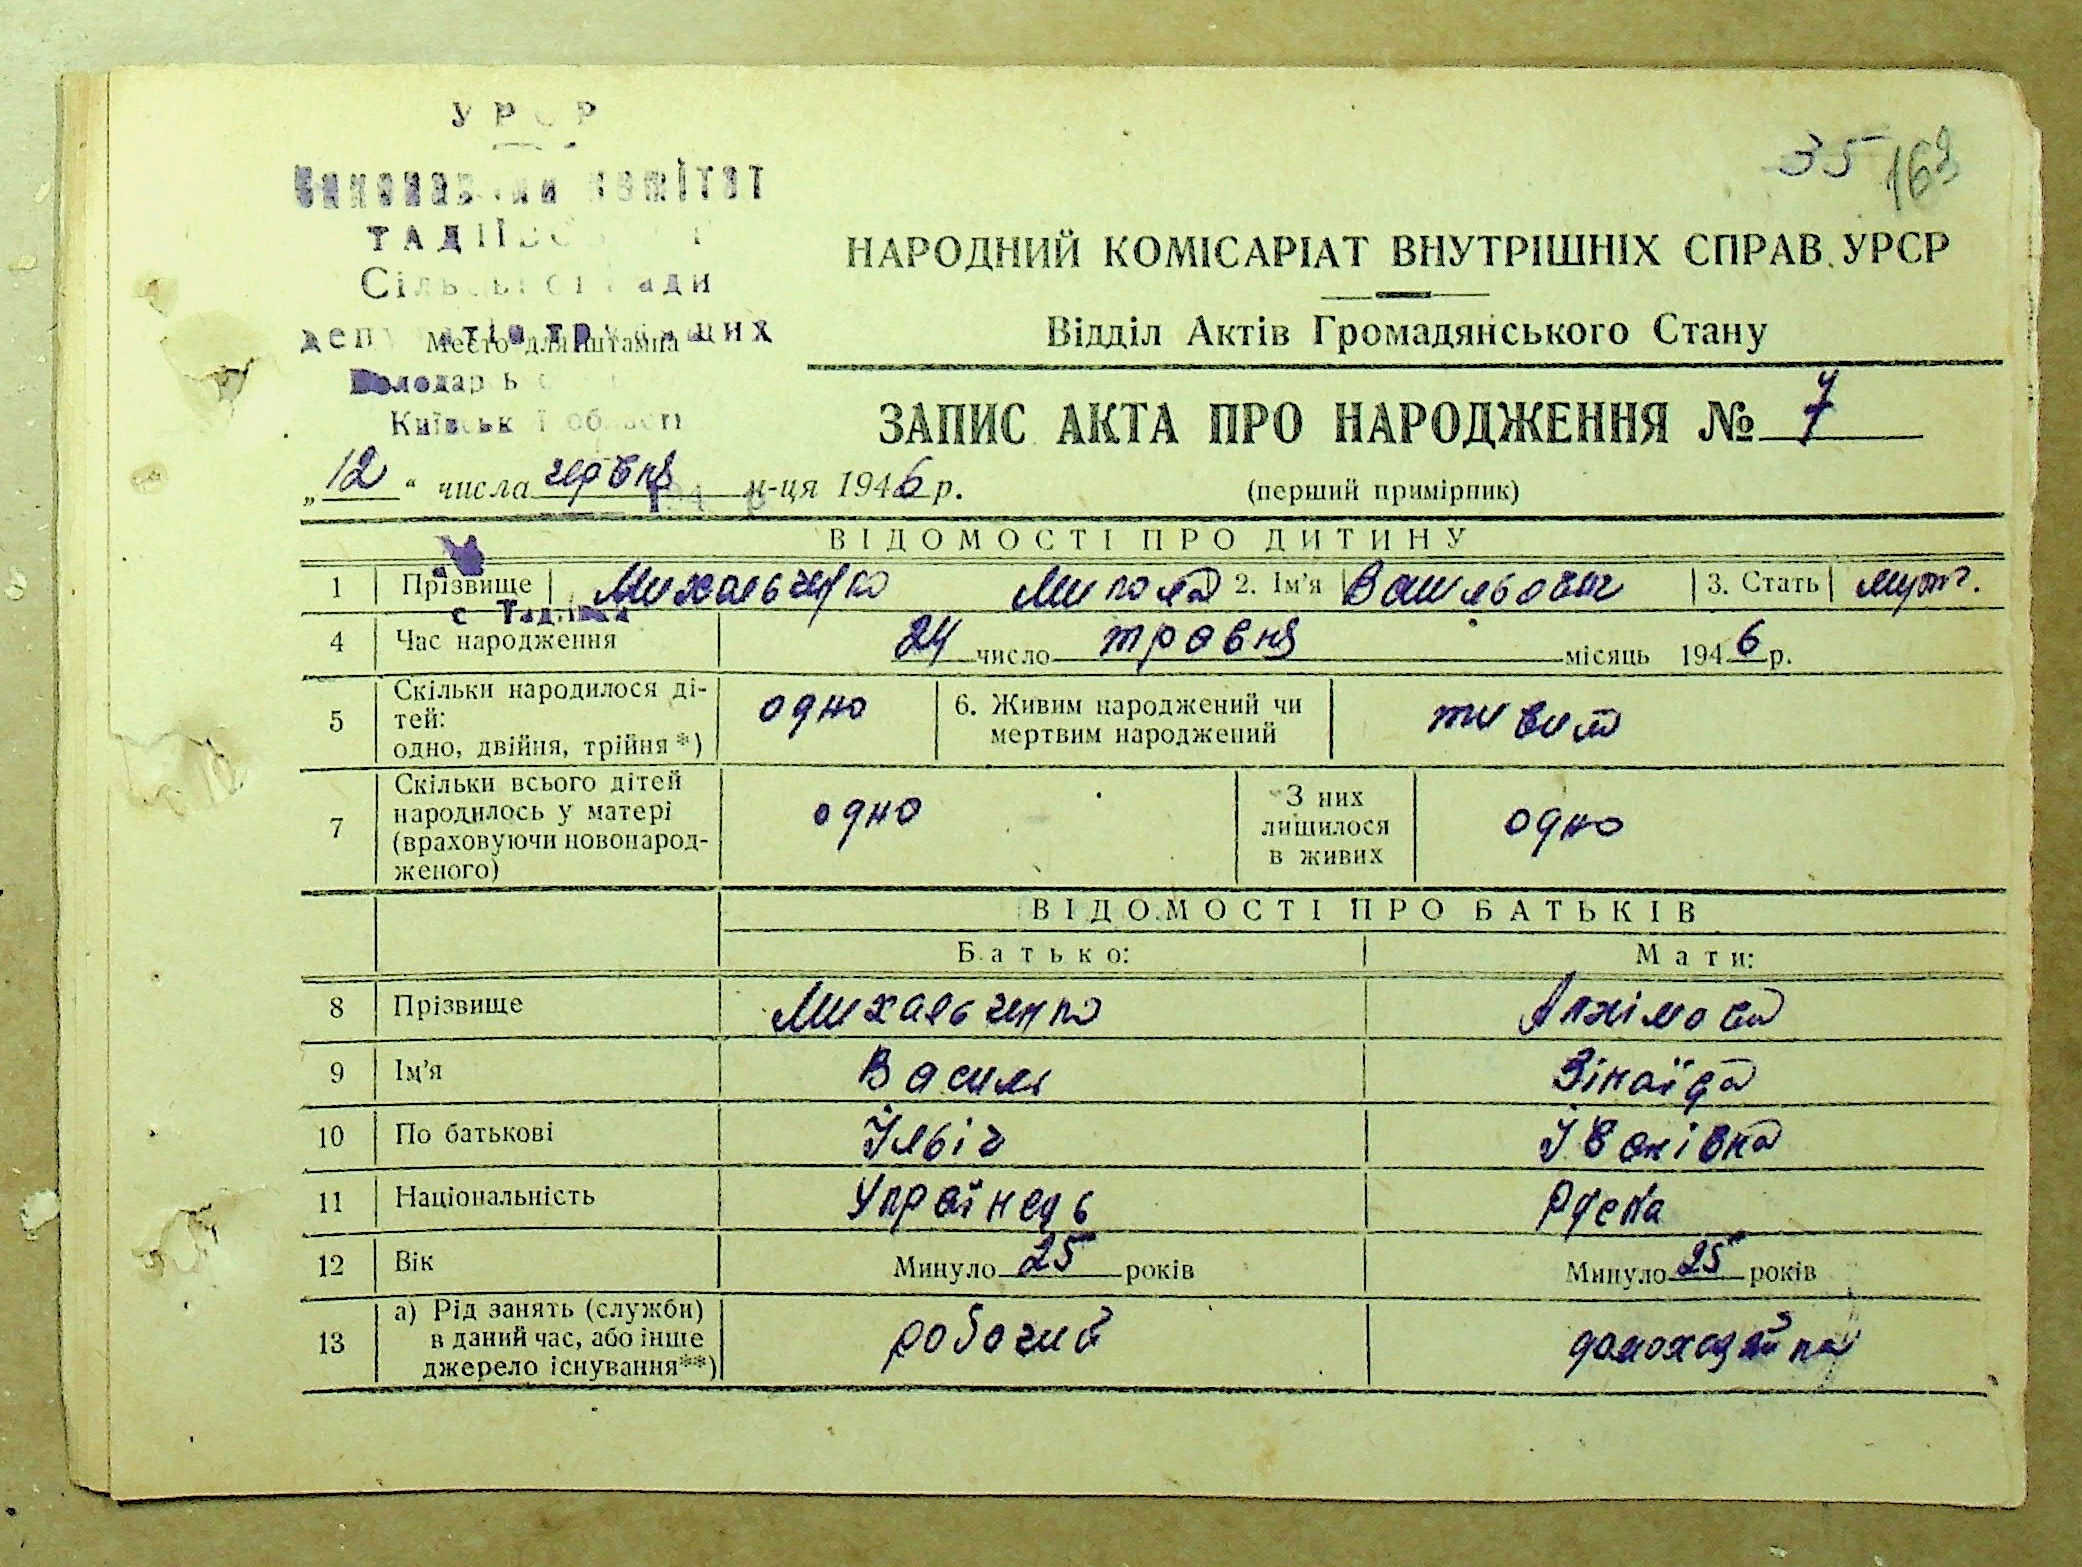 УРСР
Виконавчий комітет
ТАДІЇВСЬКОЇ
Сільської Ради
депутатів трудящих
Место для штампа
Володарсь
Київської області
35 163
НАРОДНИЙ КОМІСАРІАТ ВНУТРІШНІХ СПРАВ УРСР
Відділ Актів Громадянського Стану
ЗАПИС АКТА ПРО НАРОДЖЕННЯ № 7
„12“ числа червня м-ця 1946 р.
(перший примірник)
ВІДОМОСТІ ПРО ДИТИНУ
1 Прізвище Михальченко Микола 2. Ім'я Васильович 3. Стать муж.
с Тадіївка
4 Час народження 24 число травня місяць 1946 р.
5 Скільки народилося ді-
тей:
одно, двійня, трійня*) одно 6. Живим народжений чи
мертвим народжений живим
7 Скільки всього дітей
народилось у матері
(враховуючи новонарод-
женого) одно З них
лишилося
в живих одно
ВІДОМОСТІ ПРО БАТЬКІВ
Батько: Мати:
8 Прізвище Михальченко
9 Ім'я Василь Зінаїда
10 По батькові Ільіч Іванівна
11 Національність Українець
12 Вік Минуло 25 років Минуло 25 років
13 а) Рід занять (служби)
в даний час, або інше
джерело існування**) робочий домохазяйка